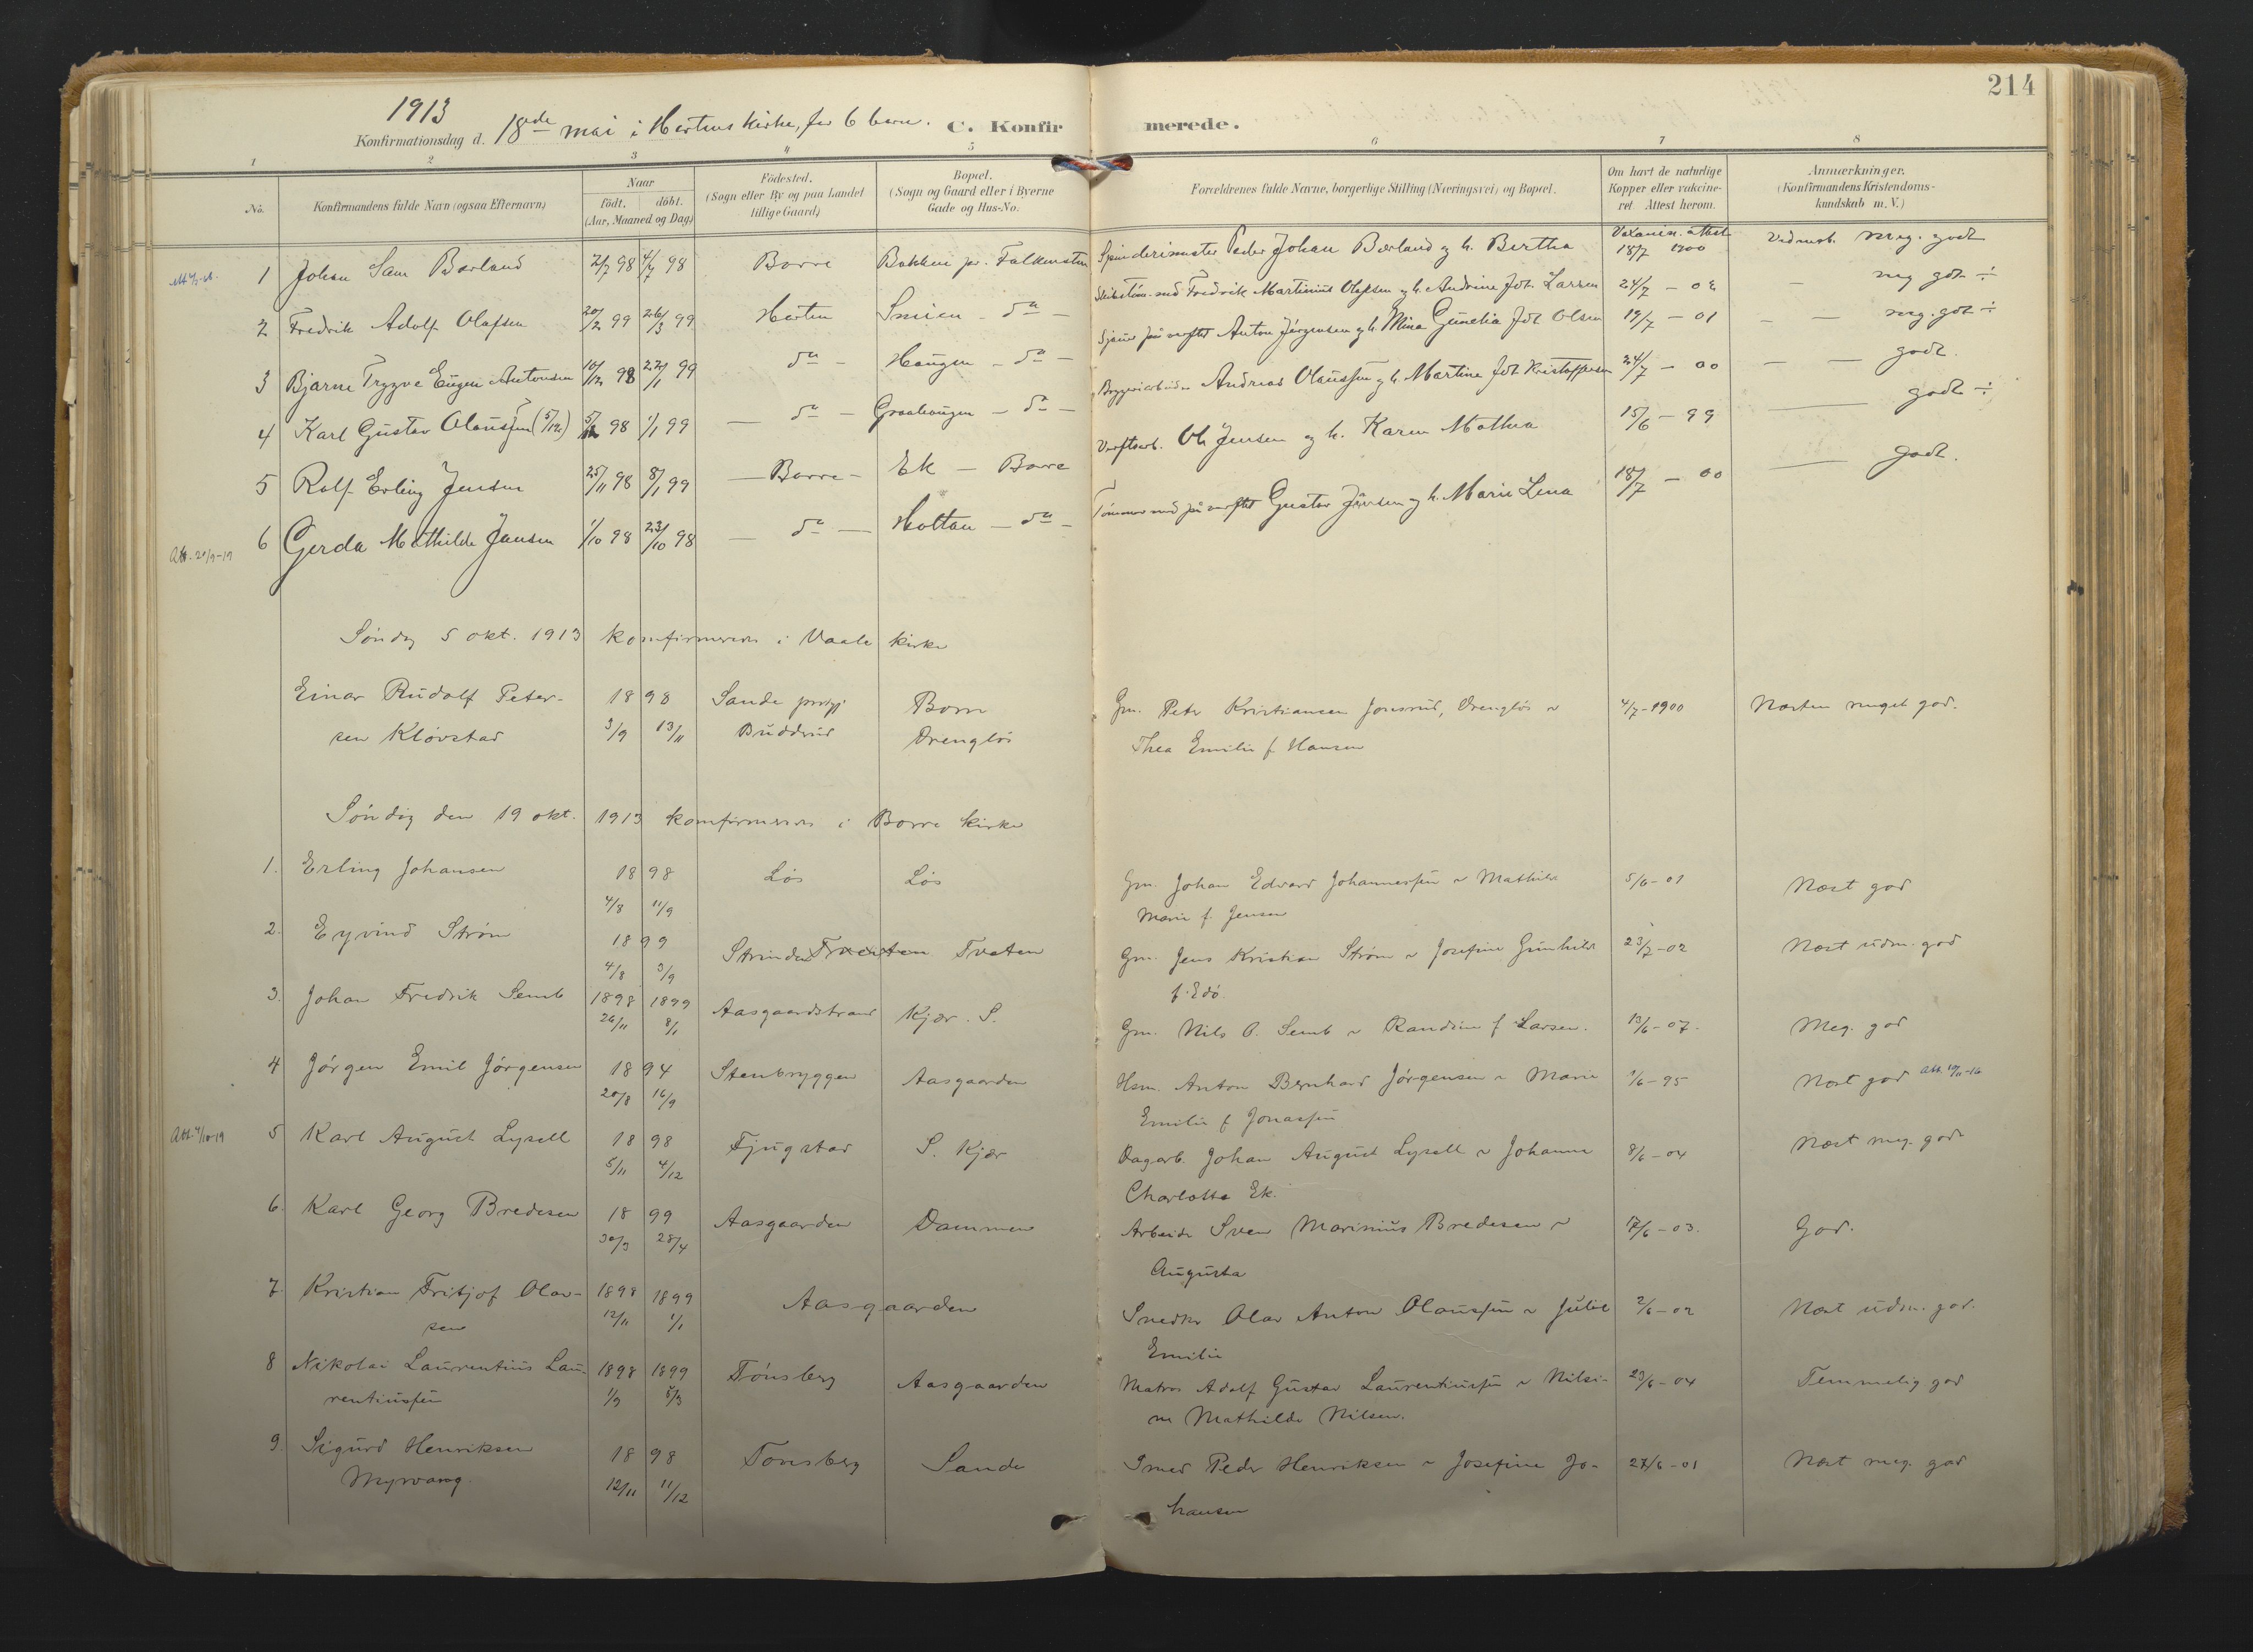 214
1913
Konfirmationsdag d. 18de mai i Hortens kirke, for 6 børn. C. Konfirmerede.
1 2 3 4 5 6 7 8
No. Konfirmandens fulde Navn (ogsaa Efternavn) Naar födt. döbt. (Aar, Maaned og Dag) Födested. (Sogn eller By og paa Landet tillige Gaard) Bopæl. (Sogn og Gaard eller i Byerne Gade og Hus-No. Forældrenes fulde Navne, borgerlige Stilling (Næringsvei) og Bopæl. Om havt de naturlige Kopper eller vakcineret. Attest herom. Anmærkninger. (Konfirmandens Kristendomskundskab m. V.)
1 Johan Sam Børland 2/7 98 4/7 98 Borre Bakken pr. Falkensten Spinderimester Peder Johan Børland g h. Bertha 18/7 1900 meg. godt
2 Fredrik Adolf Olafsen 20/2 99 26/3 99 Horten Smien - do - Fredrik Martinius Olafsen g h. Andrine fdt. Larsen 24/7 - 02 - meg godt ÷
3 Bjarne Trygve Eugen Antonsen 10/12 98 22/1 99 do - Haugen - do - Sjauer på verftet Anton Jörgensen g h. Mina Gunelia fdt Olsen 19/7 - 01 - - meg. godt ÷
4 Karl Gustav Olaussen (5/12) 5/12 98 1/1 99 - do - Graahaugen - do - Bryggeriarbeider Andreas Olaussen g h. Martine fdt Kristoffersen 24/7 - 00 - - godt.
5 Rolf Erling Jensen 25/11 98 8/1 99 - Borre - Ek - Borre Verftsarb. Ole Jensen og h. Karen Mathea 15/6 - 99 - godt ÷
Att. 20/9-19 6 Gerda Mathilde Jansen 1/10 98 23/10 98 - do - Holtan - do - Tømmermand på verftet Gustav Jansen g h. Marie Lena 18/7 - 00 - godt.
Söndag 5 okt. 1913 konfirmeres i Vaale kirke
Einar Rudolf Peter- 1898 Sande prgj Borre Gm. Peter Kristiansen Jonsrud, Vrenglös ~ 4/7-1900 Næsten meget god.
sen Klövstad 3/9 13/11 Buddrud Vrenglös Thea Emilie f. Hansen
Söndag den 19 okt. 1913 konfirmeres i Borre kirke
1. Erling Johansen 1898 Lös Lös Gm. Johan Edvard Johannessen ~ Mathilde 5/6-01 Næst god
4/8 11/9 Marie f. Jensen
2. Eyvind Ström 1899 Strinda Tveten Gm. Jens Kristian Ström ~ Josefine Gunhild 23/7-02 Næst udm. god
4/8 3/9 f. Edö.
3. Johan Fredrik Semb 1898 1899 Aasgaardstrand Kjær. S. Gm. Nils O. Semb ~ Randine f Larsen. 13/6-07. Meg. god
26/11 8/1
4 Jörgen Emil Jörgensen 1894 Stenbryggen Aasgaarden Hsm. Anton Bernhard Jörgensen ~ Marie 1/6-95 Næst god Att. 19/11-16
20/8 16/9 Emilie f Jonassen
Att. 4/10-19 5 Karl August Lysell 1898 Fjugstad S. Kjær Dagarb. Johan August Lysell ~ Johanne 8/6-04 Næst meg. god
5/11 4/12 Charlotte Ek.
6. Karl Georg Bredesen 1899 Aasgaarden Dammen Arbeider Sven Marinius Bredesen ~ 17/6-03. God.
30/3 28/4 Augusta
7. Kristian Fritjof Olav- 1898 1899 Aasgaarden Snedker Olav Anton Olaussen ~ Julie 2/6-02 Næst udm. god.
sen 12/11 1/1 Emilie
8 Nikolai Laurentius Lau- 1898 1899 Tönsberg Aasgaarden Matros Adolf Gustav Laurentiussen ~ Nilsi- 23/6-04 Temmelig god
rentiussen 1/9 5/3 ne Mathilde Nilsen.
9. Sigurd Henriksen 1898 Tönsberg Sande Smed Peder Henriksen ~ Josefine Jo- 27/6-01 Næst meg. god
Myrvang. 12/11 11/12 hansen